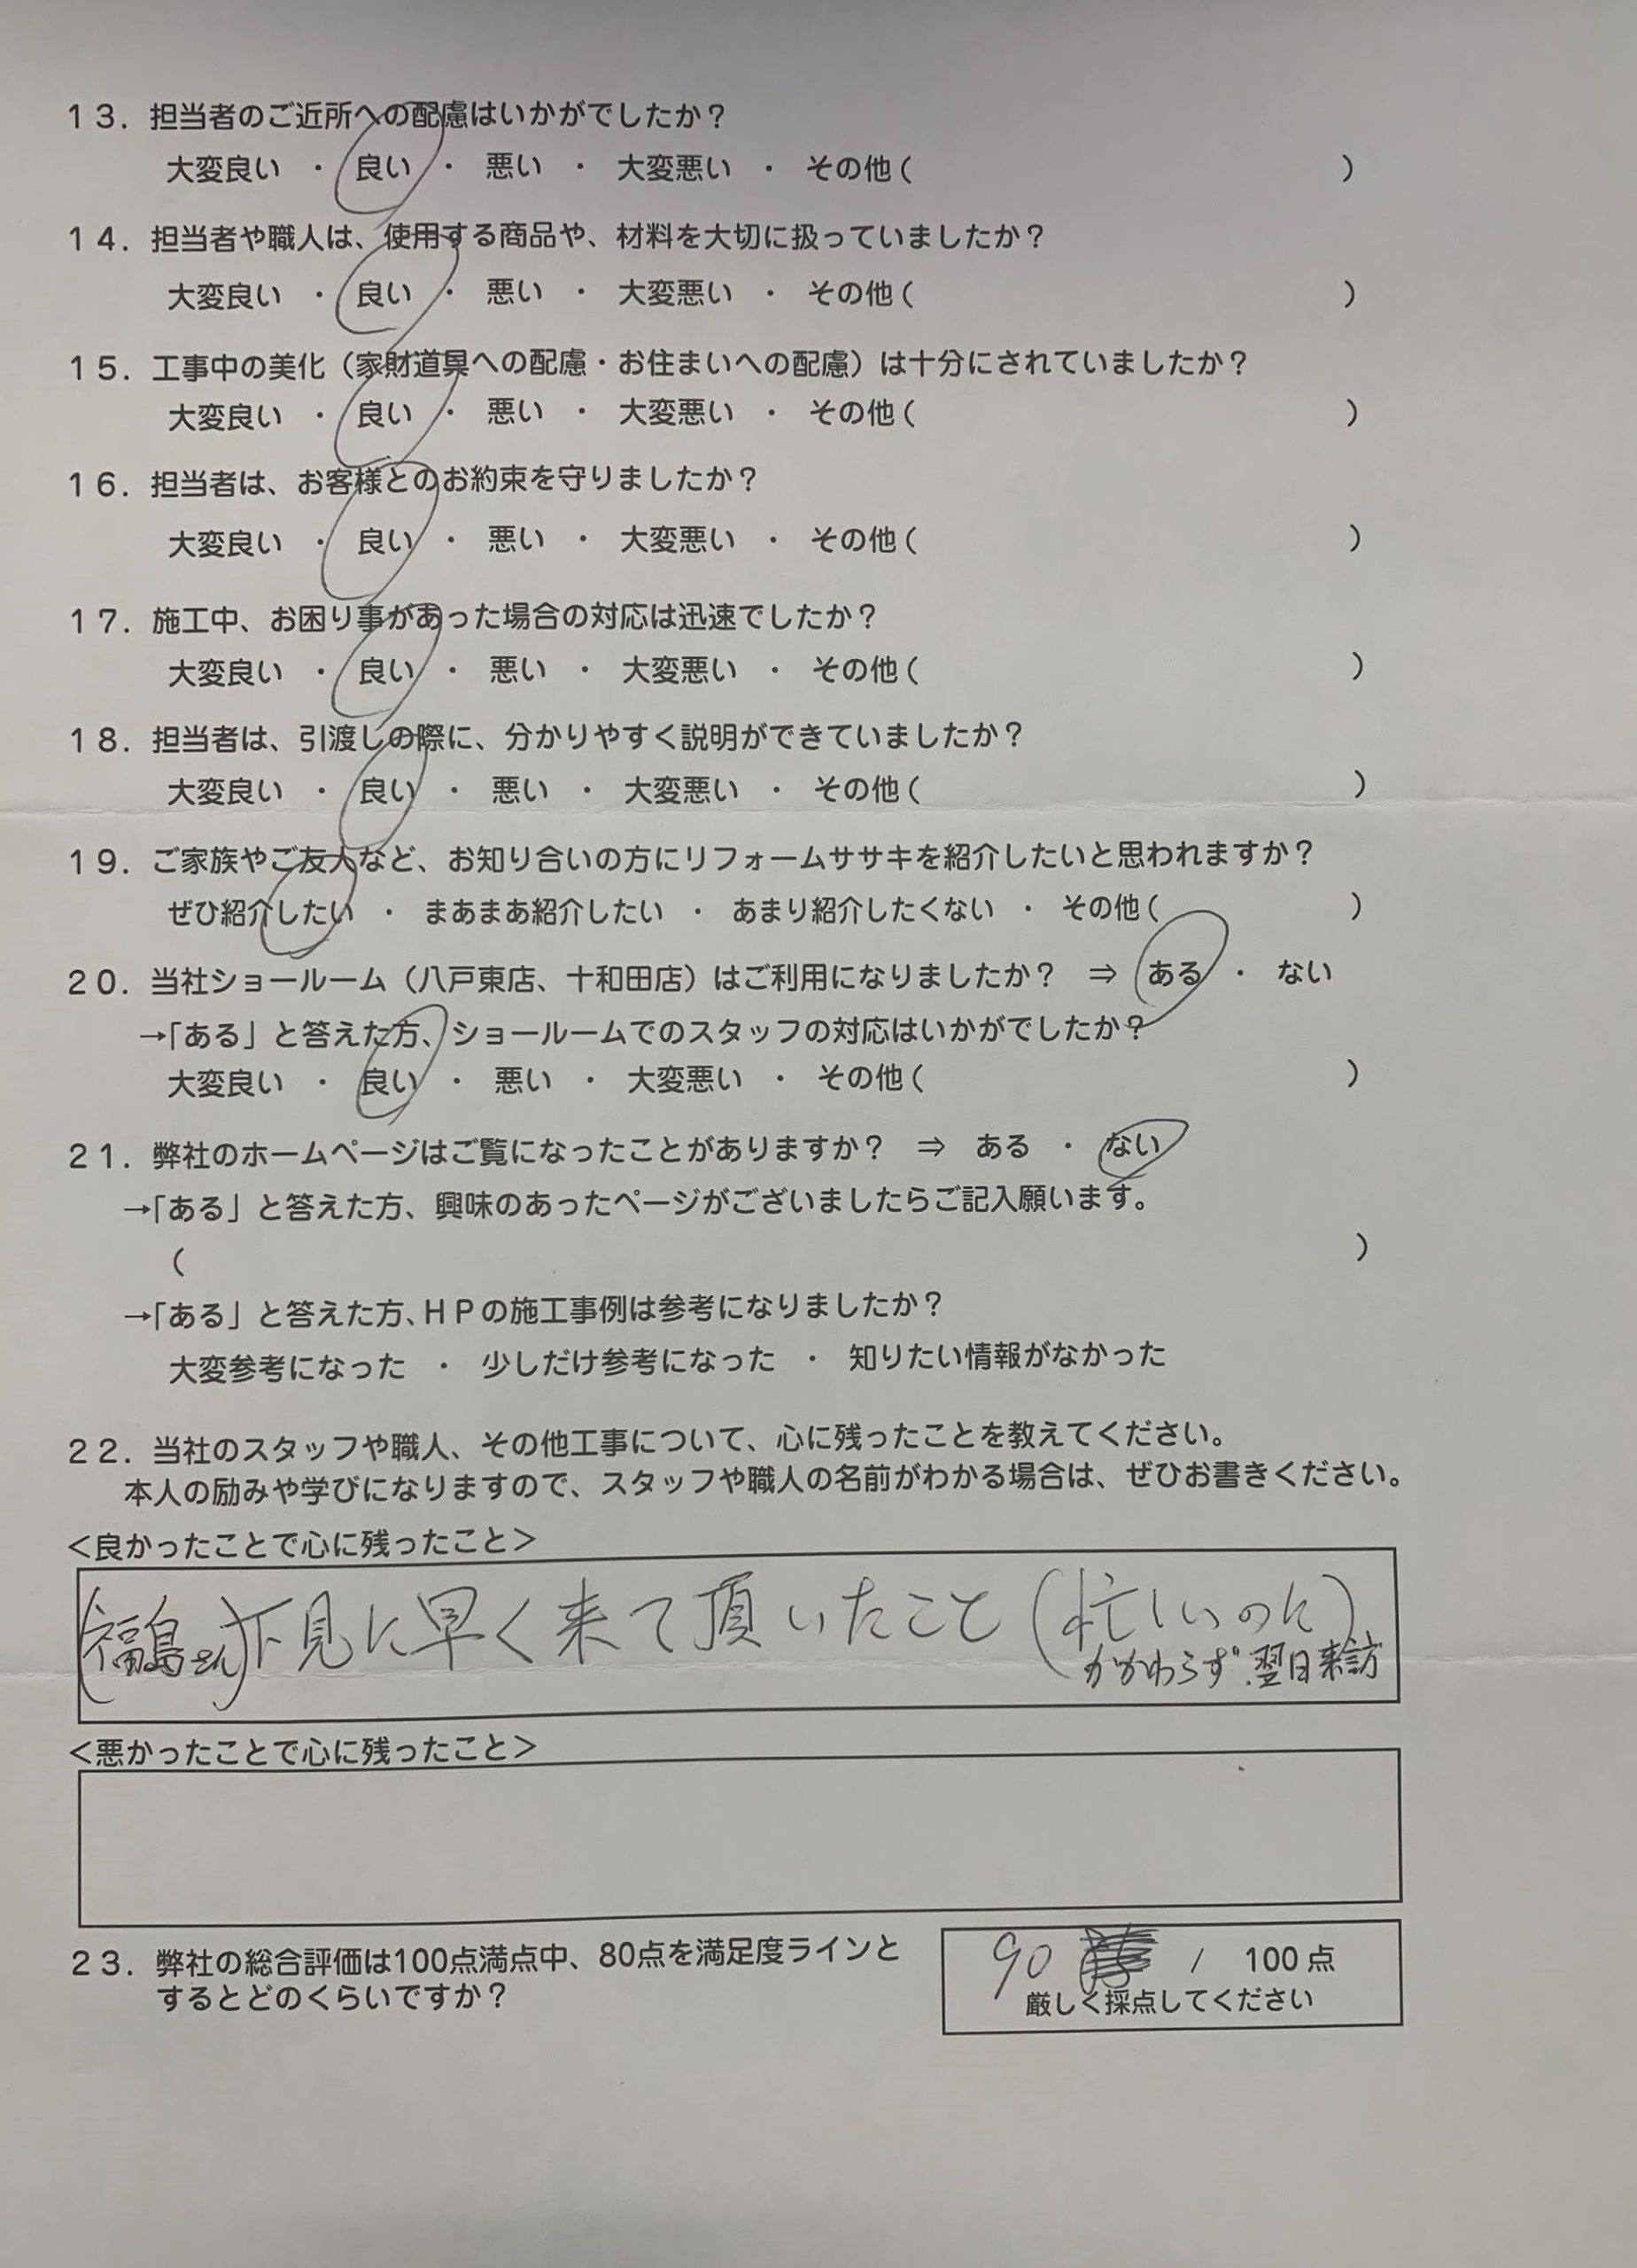 １３．担当者のご近所への配慮はいかがでしたか？
大変良い ・ 良い ・ 悪い ・ 大変悪い ・ その他（ ）
１４．担当者や職人は、使用する商品や、材料を大切に扱っていましたか？
大変良い ・ 良い ・ 悪い ・ 大変悪い ・ その他（ ）
１５．工事中の美化（家財道具への配慮・お住まいへの配慮）は十分にされていましたか？
大変良い ・ 良い ・ 悪い ・ 大変悪い ・ その他（ ）
１６．担当者は、お客様とのお約束を守りましたか？
大変良い ・ 良い ・ 悪い ・ 大変悪い ・ その他（ ）
１７．施工中、お困り事があった場合の対応は迅速でしたか？
大変良い ・ 良い ・ 悪い ・ 大変悪い ・ その他（ ）
１８．担当者は、引渡しの際に、分かりやすく説明ができていましたか？
大変良い ・ 良い ・ 悪い ・ 大変悪い ・ その他（ ）
１９．ご家族やご友人など、お知り合いの方にリフォームササキを紹介したいと思われますか？
ぜひ紹介したい ・ まあまあ紹介したい ・ あまり紹介したくない ・ その他（ ）
２０．当社ショールーム（八戸東店、十和田店）はご利用になりましたか？ ⇒ ある ・ ない
→「ある」と答えた方、ショールームでのスタッフの対応はいかがでしたか？
大変良い ・ 良い ・ 悪い ・ 大変悪い ・ その他（ ）
２１．弊社のホームページはご覧になったことがありますか？ ⇒ ある ・ ない
→「ある」と答えた方、興味のあったページがございましたらご記入願います。
（ ）
→「ある」と答えた方、ＨＰの施工事例は参考になりましたか？
大変参考になった ・ 少しだけ参考になった ・ 知りたい情報がなかった
２２．当社のスタッフや職人、その他工事について、心に残ったことを教えてください。
本人の励みや学びになりますので、スタッフや職人の名前がわかる場合は、ぜひお書きください。
＜良かったことで心に残ったこと＞
（福島さん）下見に早く来て頂いたこと（忙しいのに）
かかわらず．翌日来訪
＜悪かったことで心に残ったこと＞
２３．弊社の総合評価は100点満点中、80点を満足度ラインと
するとどのくらいですか？
90 / 100 点
厳しく採点してください